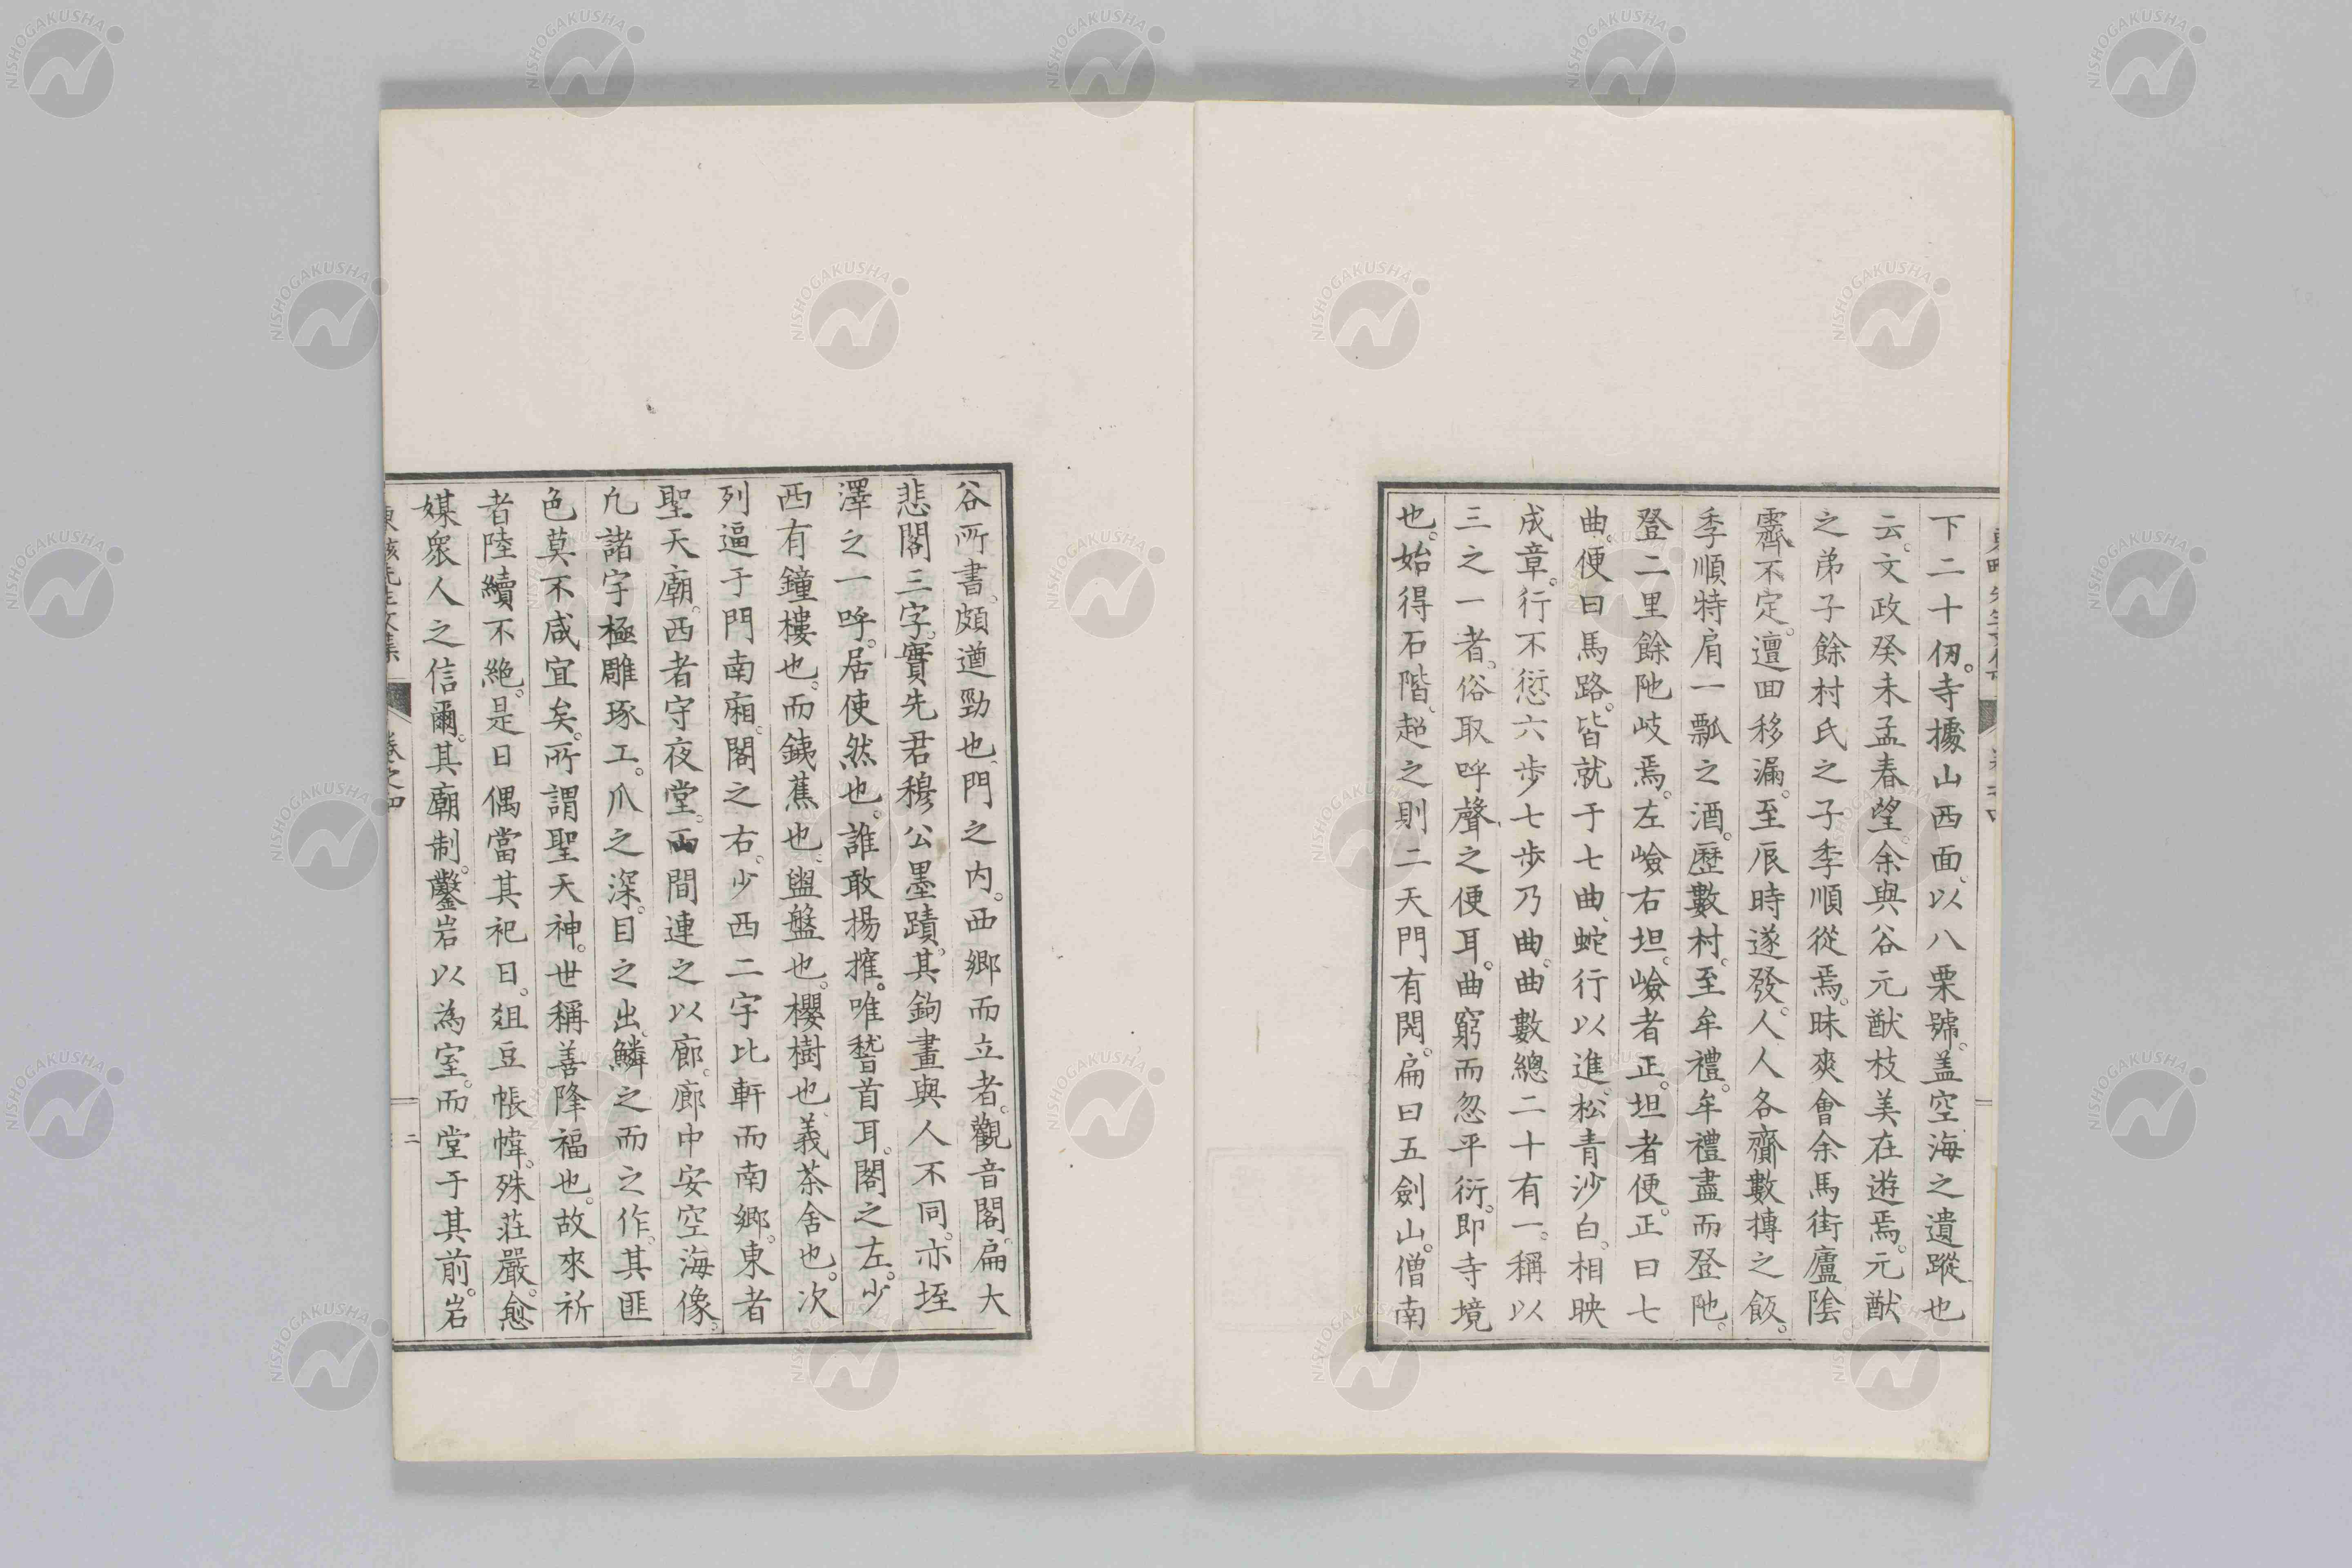 下二十仞。寺據山西面、以八栗號。盖空海之遺蹤也
云。文政癸未孟春望余與谷元猷枝美在遊焉。元猷
之弟子餘村氏之子季順從焉。昧爽會余馬街廬。陰
霽不定。邅囬移漏。至辰時遂發。人人各齎數摶之飯。
季順特肩一瓢之酒。歷數村。至牟禮。牟禮盡而登阤。
登二里餘阤岐焉。左嶮右坦。嶮者正。坦者便。正曰七
曲。便曰馬路。皆就于七曲、蛇行以進。松青沙白。相映
成章。行不愆六步七步乃曲。曲數總二十有一。稱以
三之一者。俗取呼聲之便耳。曲窮而忽平衍。即寺境
也。始得石階、超之則二天門有閌。扁曰五劍山。僧南
谷所書。頗遒勁也、門之内。西鄉而立者。觀音閣。扁大
悲閣三字。實先君穆公墨蹟。其鉤畫與人不同。亦垤
澤之一呼。居使然也。誰敢揚搉。唯稽首耳。閣之左。少
西有鐘樓也。而銕蕉也、盥盤也。櫻樹也、義茶舍也。次
列逼于門南廂。閣之右。少西二宇比軒而南鄉。東者
聖天廟。西者守夜堂。兩間連之以廊。廊中安空海像。
凢諸宇極雕琢工。爪之深。目之出。鱗之而之作。其匪
色莫不咸宜矣。所謂聖天神。世稱善降福也。故來祈
者陸續不絶。是日偶當其祀日。俎豆帳幃。殊莊嚴。愈
媒衆人之信爾。其廟制。鑿岩以為室。而堂于其前。岩
卷之四
二